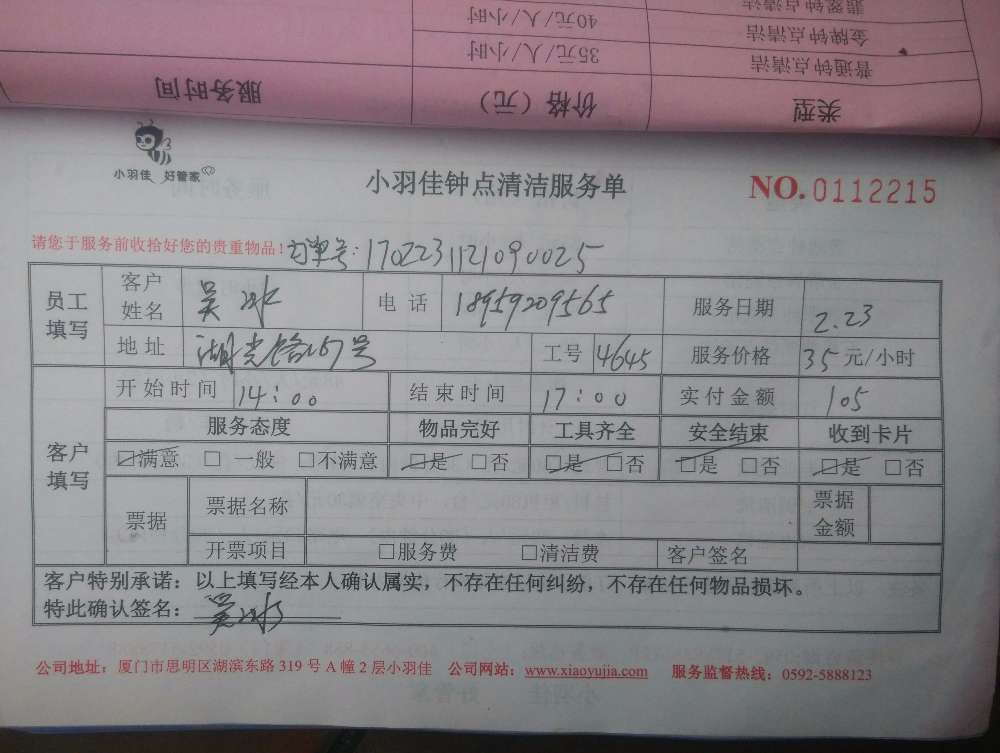 翡翠钟点清洁
金牌钟点清洁 40元/人/小时
普通钟点清洁 35元/人/小时
类型 价格（元） 服务时间
小羽佳 好管家
小羽佳钟点清洁服务单 NO.0112215
请您于服务前收拾好您的贵重物品！订单号:1702231121090025
员工填写 客户姓名 吴冰 电话 18959209565 服务日期 2.23
地址 湖光路 号 工号 4645 服务价格 35元/小时
客户填写 开始时间 14:00 结束时间 17:00 实付金额 105
服务态度 物品完好 工具齐全 安全结束 收到卡片
☑满意 □一般 □不满意 ☑是 □否 ☑是 □否 ☑是 □否 ☑是 □否
票据 票据名称 票据金额
开票项目 □服务费 □清洁费 客户签名
客户特别承诺：以上填写经本人确认属实，不存在任何纠纷，不存在任何物品损坏。
特此确认签名：吴冰
公司地址：厦门市思明区湖滨东路 319 号 A 幢 2 层小羽佳 公司网站：www.xiaoyujia.com 服务监督热线：0592-5888123